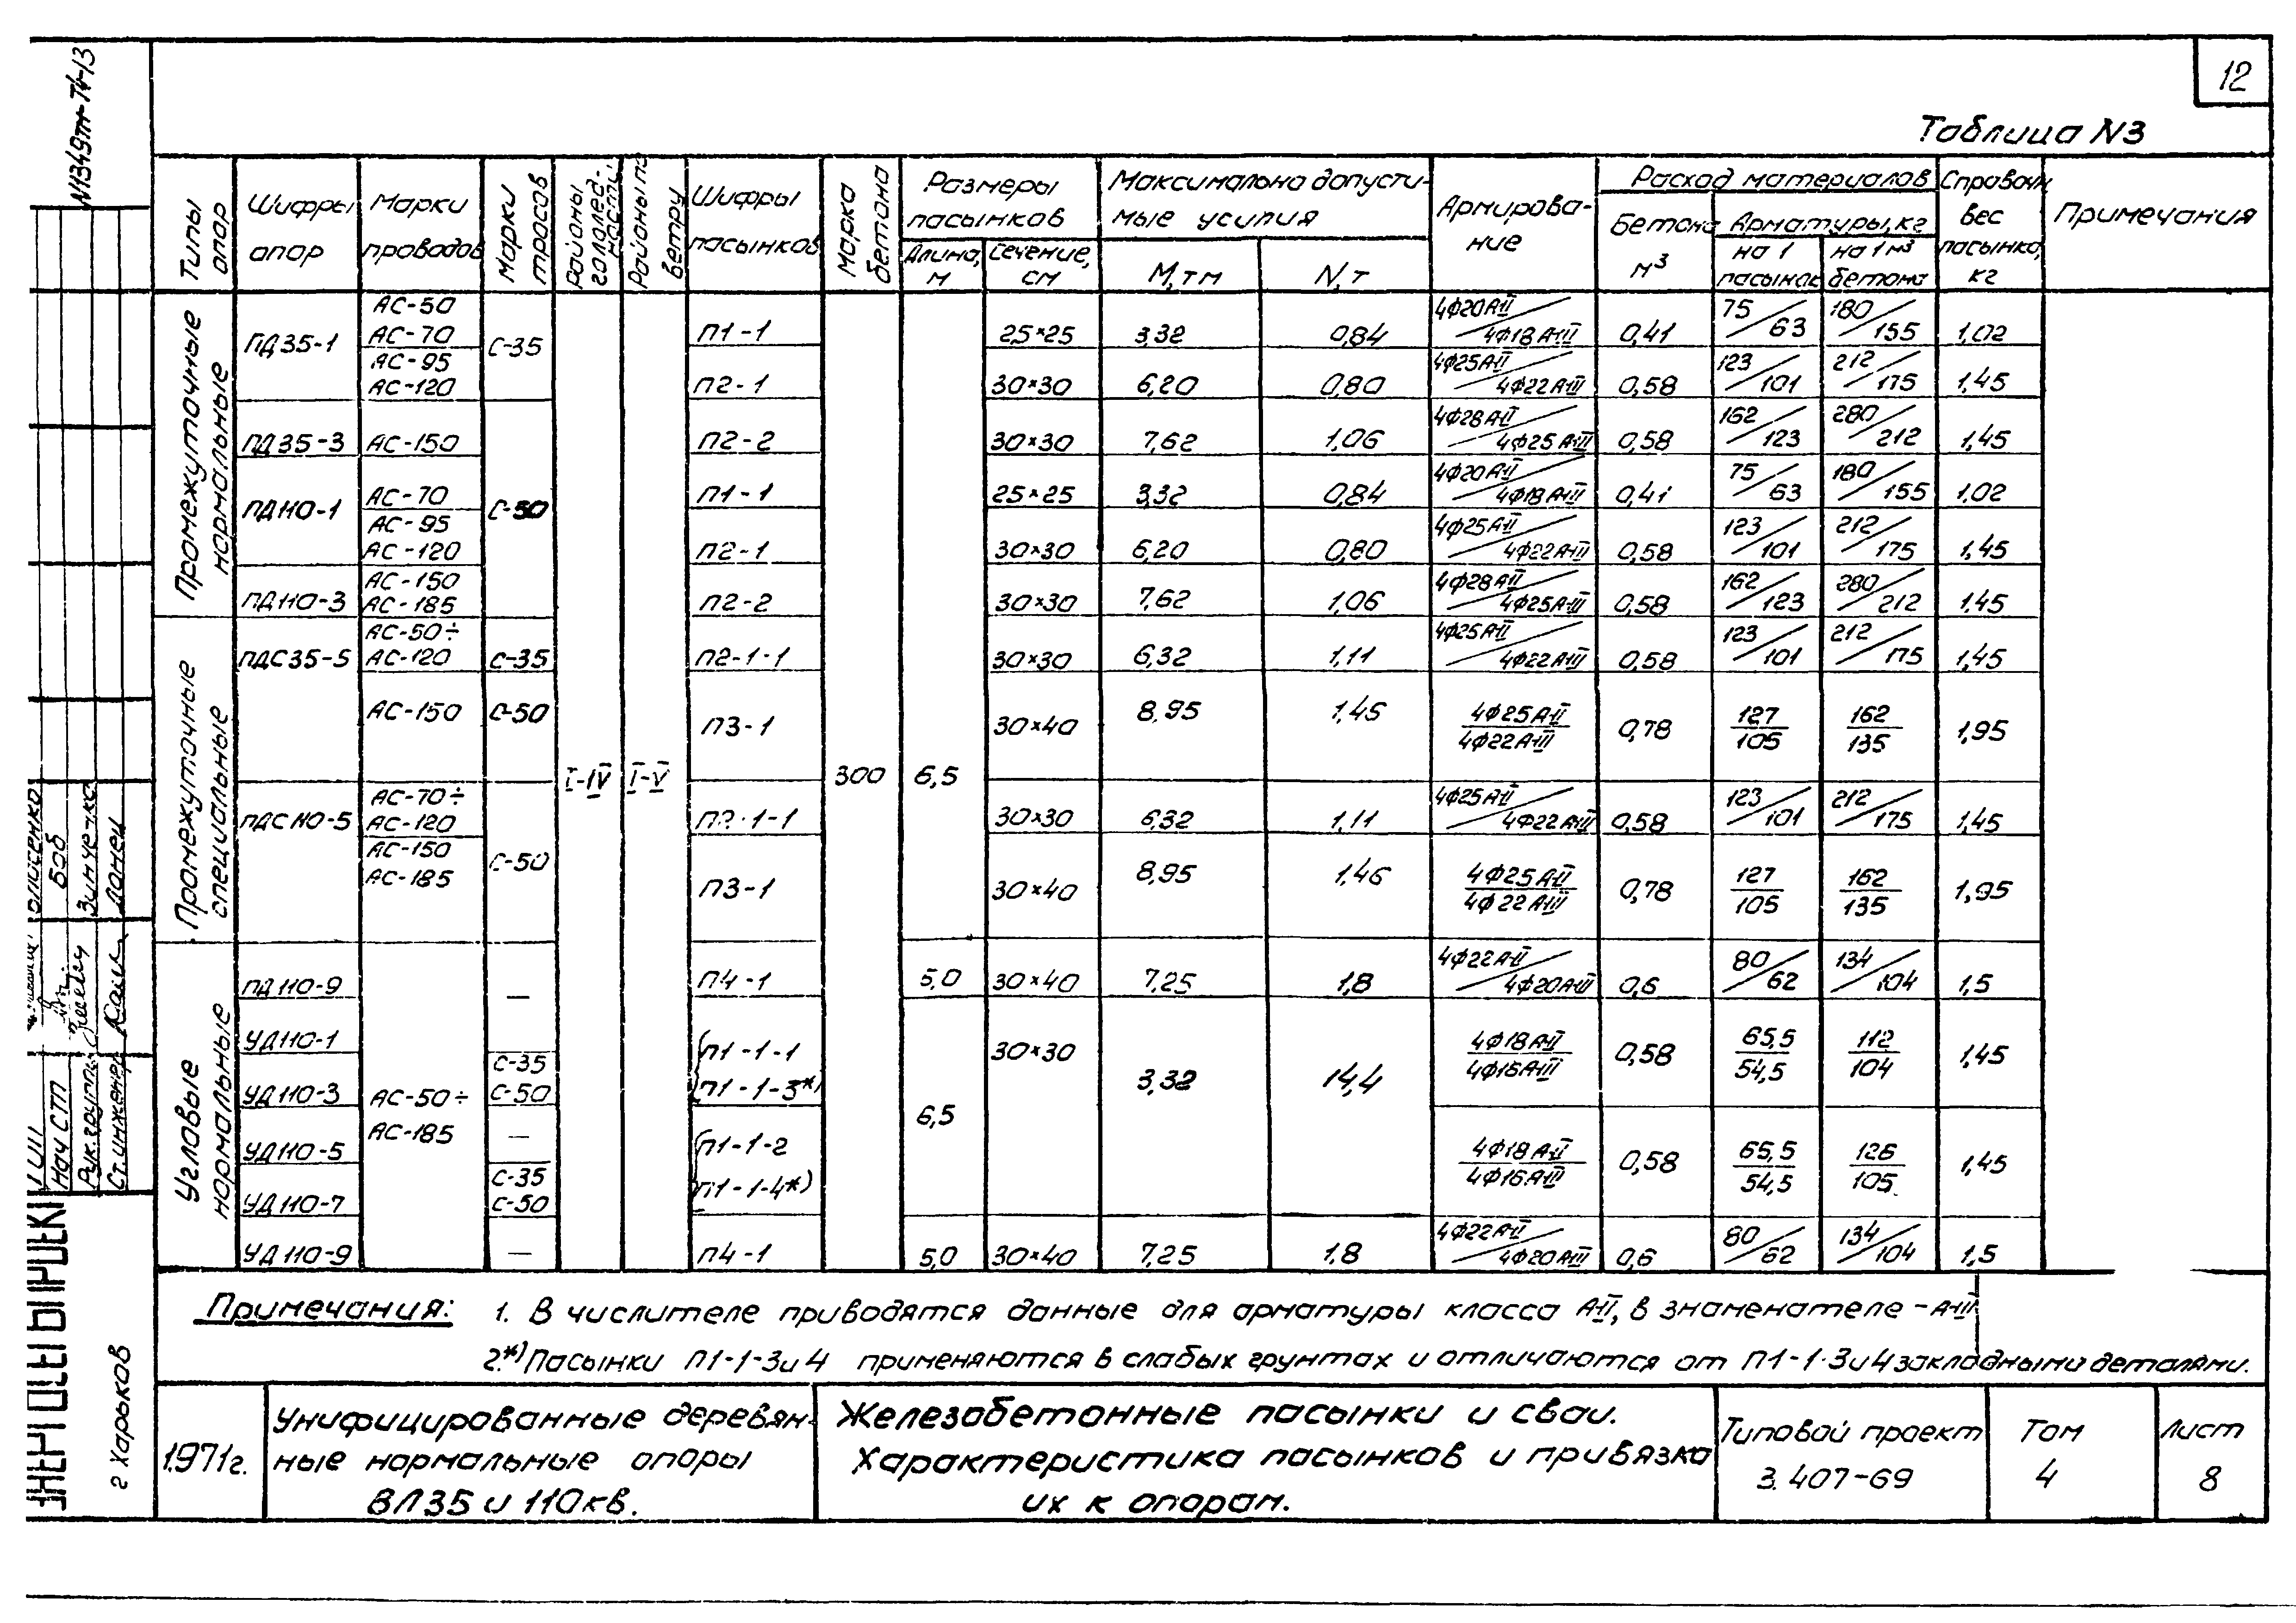 12
N1349тм-Т4-13
Таблица N3
Типы опор
Шифры опор
Марки проводов
Марки тросов
Районы гололед-ности
Районы по ветру
Шифры пасынков
Марка бетона
Размеры пасынков
Длина, м
Сечение, см
Максимально допусти-мые усилия
М,тм
N,т
Армирова-ние
Расход материалов
Бетона м³
Арматуры, кг
на 1 пасынок
на 1 м³ бетона
Справочн вес пасынка, кг
Примечания
Промежуточные нормальные
I-IV
I-V
300
6,5
ПД35-1 АС-50 АС-70 С-35 П1-1 25×25 3,32 0,84 4ф20А-II/4ф18А-III 0,41 75/63 180/155 1,02
АС-95 АС-120 П2-1 30×30 6,20 0,80 4ф25А-II/4ф22А-III 0,58 123/101 212/175 1,45
ПД35-3 АС-150 П2-2 30×30 7,62 1,06 4ф28А-II/4ф25А-III 0,58 162/123 280/212 1,45
ПД110-1 АС-70 С-50 П1-1 25×25 3,32 0,84 4ф20А-II/4ф18А-II 0,41 75/63 180/155 1,02
АС-95 АС-120 П2-1 30×30 6,20 0,80 4ф25А-II/4ф22А-III 0,58 123/101 212/175 1,45
ПД110-3 АС-150 АС-185 П2-2 30×30 7,62 1,06 4ф28А-II/4ф25А-III 0,58 162/123 280/212 1,45
Промежуточные специальные
ПДС35-5 АС-50÷ АС-120 С-35 П2-1-1 30×30 6,32 1,11 4ф25А-II/4ф22А-III 0,58 123/101 212/175 1,45
АС-150 С-50 П3-1 30×40 8,95 1,45 4ф25А-II/4ф22А-III 0,78 127/105 162/135 1,95
ПДС110-5 АС-70÷ АС-120 С-50 30×30 6,32 1,11 4ф25А-II/4ф22А-III 0,58 123/101 212/175 1,45
АС-150 АС-185 П3-1 30×40 8,95 1,46 4ф25А-II/4ф22А-III 0,78 127/105 162/135 1,95
Угловые нормальные
ПД110-9 — П4-1 5,0 30×40 7,25 1,8 4ф22А-II/4ф20А-III 0,6 80/62 134/104 1,5
УД110-1 П1-1-1 30×30 4ф18А-II/4ф16А-III 0,58 65,5/54,5 112/104 1,45
УД110-3 АС-50÷ АС-185 С-35 С-50 П1-1-3*) 6,5 3,32 14,4
УД110-5 — П1-1-2 4ф18А-II/4ф16А-III 0,58 65,5/54,5 126/105 1,45
УД110-7 С-35 С-50 П1-1-4*)
УД110-9 — П4-1 5,0 30×40 7,25 1,8 4ф22А-II/4ф20А-III 0,6 80/62 134/104 1,5
Примечания: 1. В числителе приводятся данные для арматуры класса А-II, в знаменателе – А-III
2.*) Пасынки П1-1-3и4 применяются в слабых грунтах и отличаются от П1-1-3и4 закладными деталями.
1971г.
Унифицированные деревян-
ные нормальные опоры
ВЛ35 и 110кв.
Железобетонные пасынки и сваи.
Характеристика пасынков и привязка
их к опорам.
Типовой проект
3.407-69
Том
4
Лист
8
Нач СТП
Боб
Рук.группы
Зинченко
Ст.инженер
Донец
г Харьков